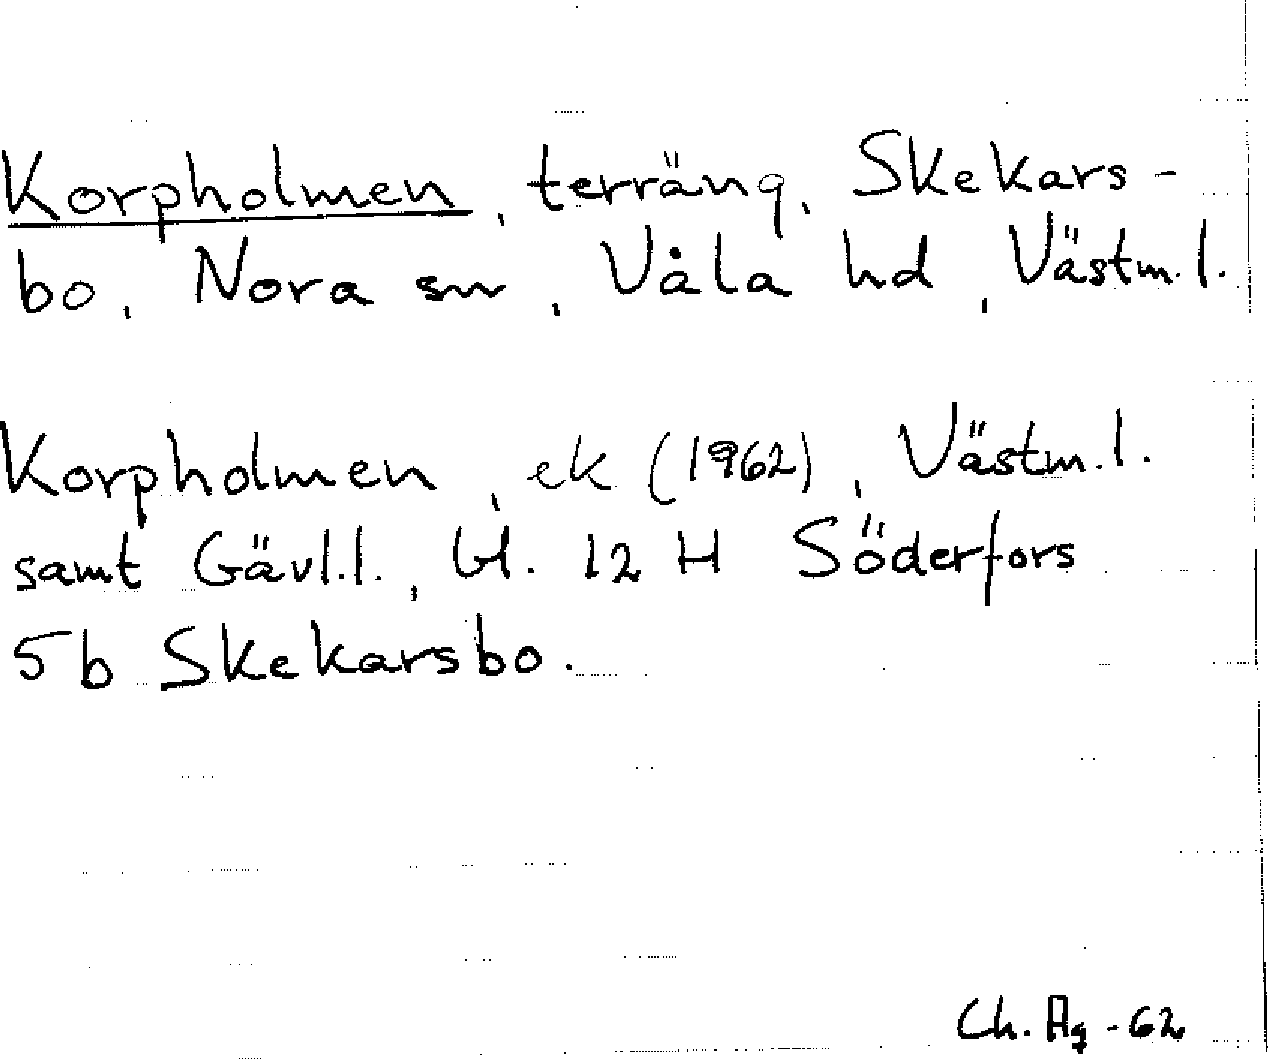 Korpholmen, terräng, Skekars-
bo, Nora sn, Våla hd, Västm.l.
Korpholmen, ek (1962), Västm.l.
samt Gävl.l., bl. 12 H Söderfors
5b Skekarsbo.
Ch. Ag -62